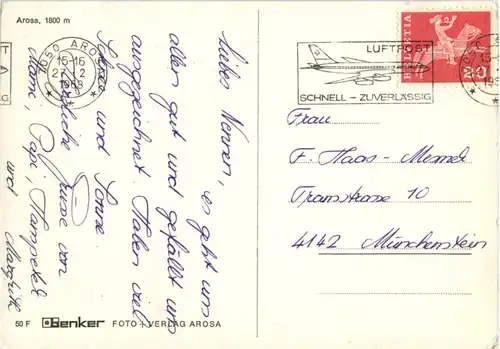 Arosa, 1800 m
7050 AROSA
15-16
27. 2
1968
LUFTPOST
SCHNELL - ZUVERLÄSSIG
HELVETIA
20
Liebes Nennen, es geht uns
allen gut und gefällt uns
ausgezeichnet. Haben viel
Schnee und Sonne.
Herzliche Grüsse von
Mami, Papi, Hanspeter
und Margrith
Frau
F. Haas-
Tramstrasse 10
4142 Münchenstein
50 F Benker FOTO + VERLAG AROSA